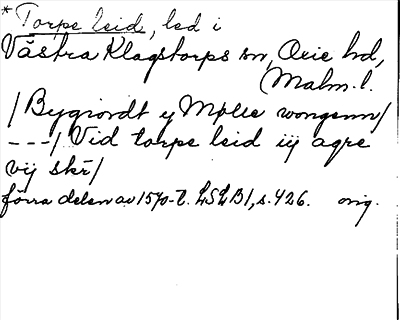 *Torpe leid, led i
Västra Klagstorps sn, Oxie hd,
Malm. l.
/Bygiordt y Mølle wongenn/
---/ Vid torpe leid iij agre
vij skr/
förra delen av 1570-t. LSLB1, s. 426. orig.